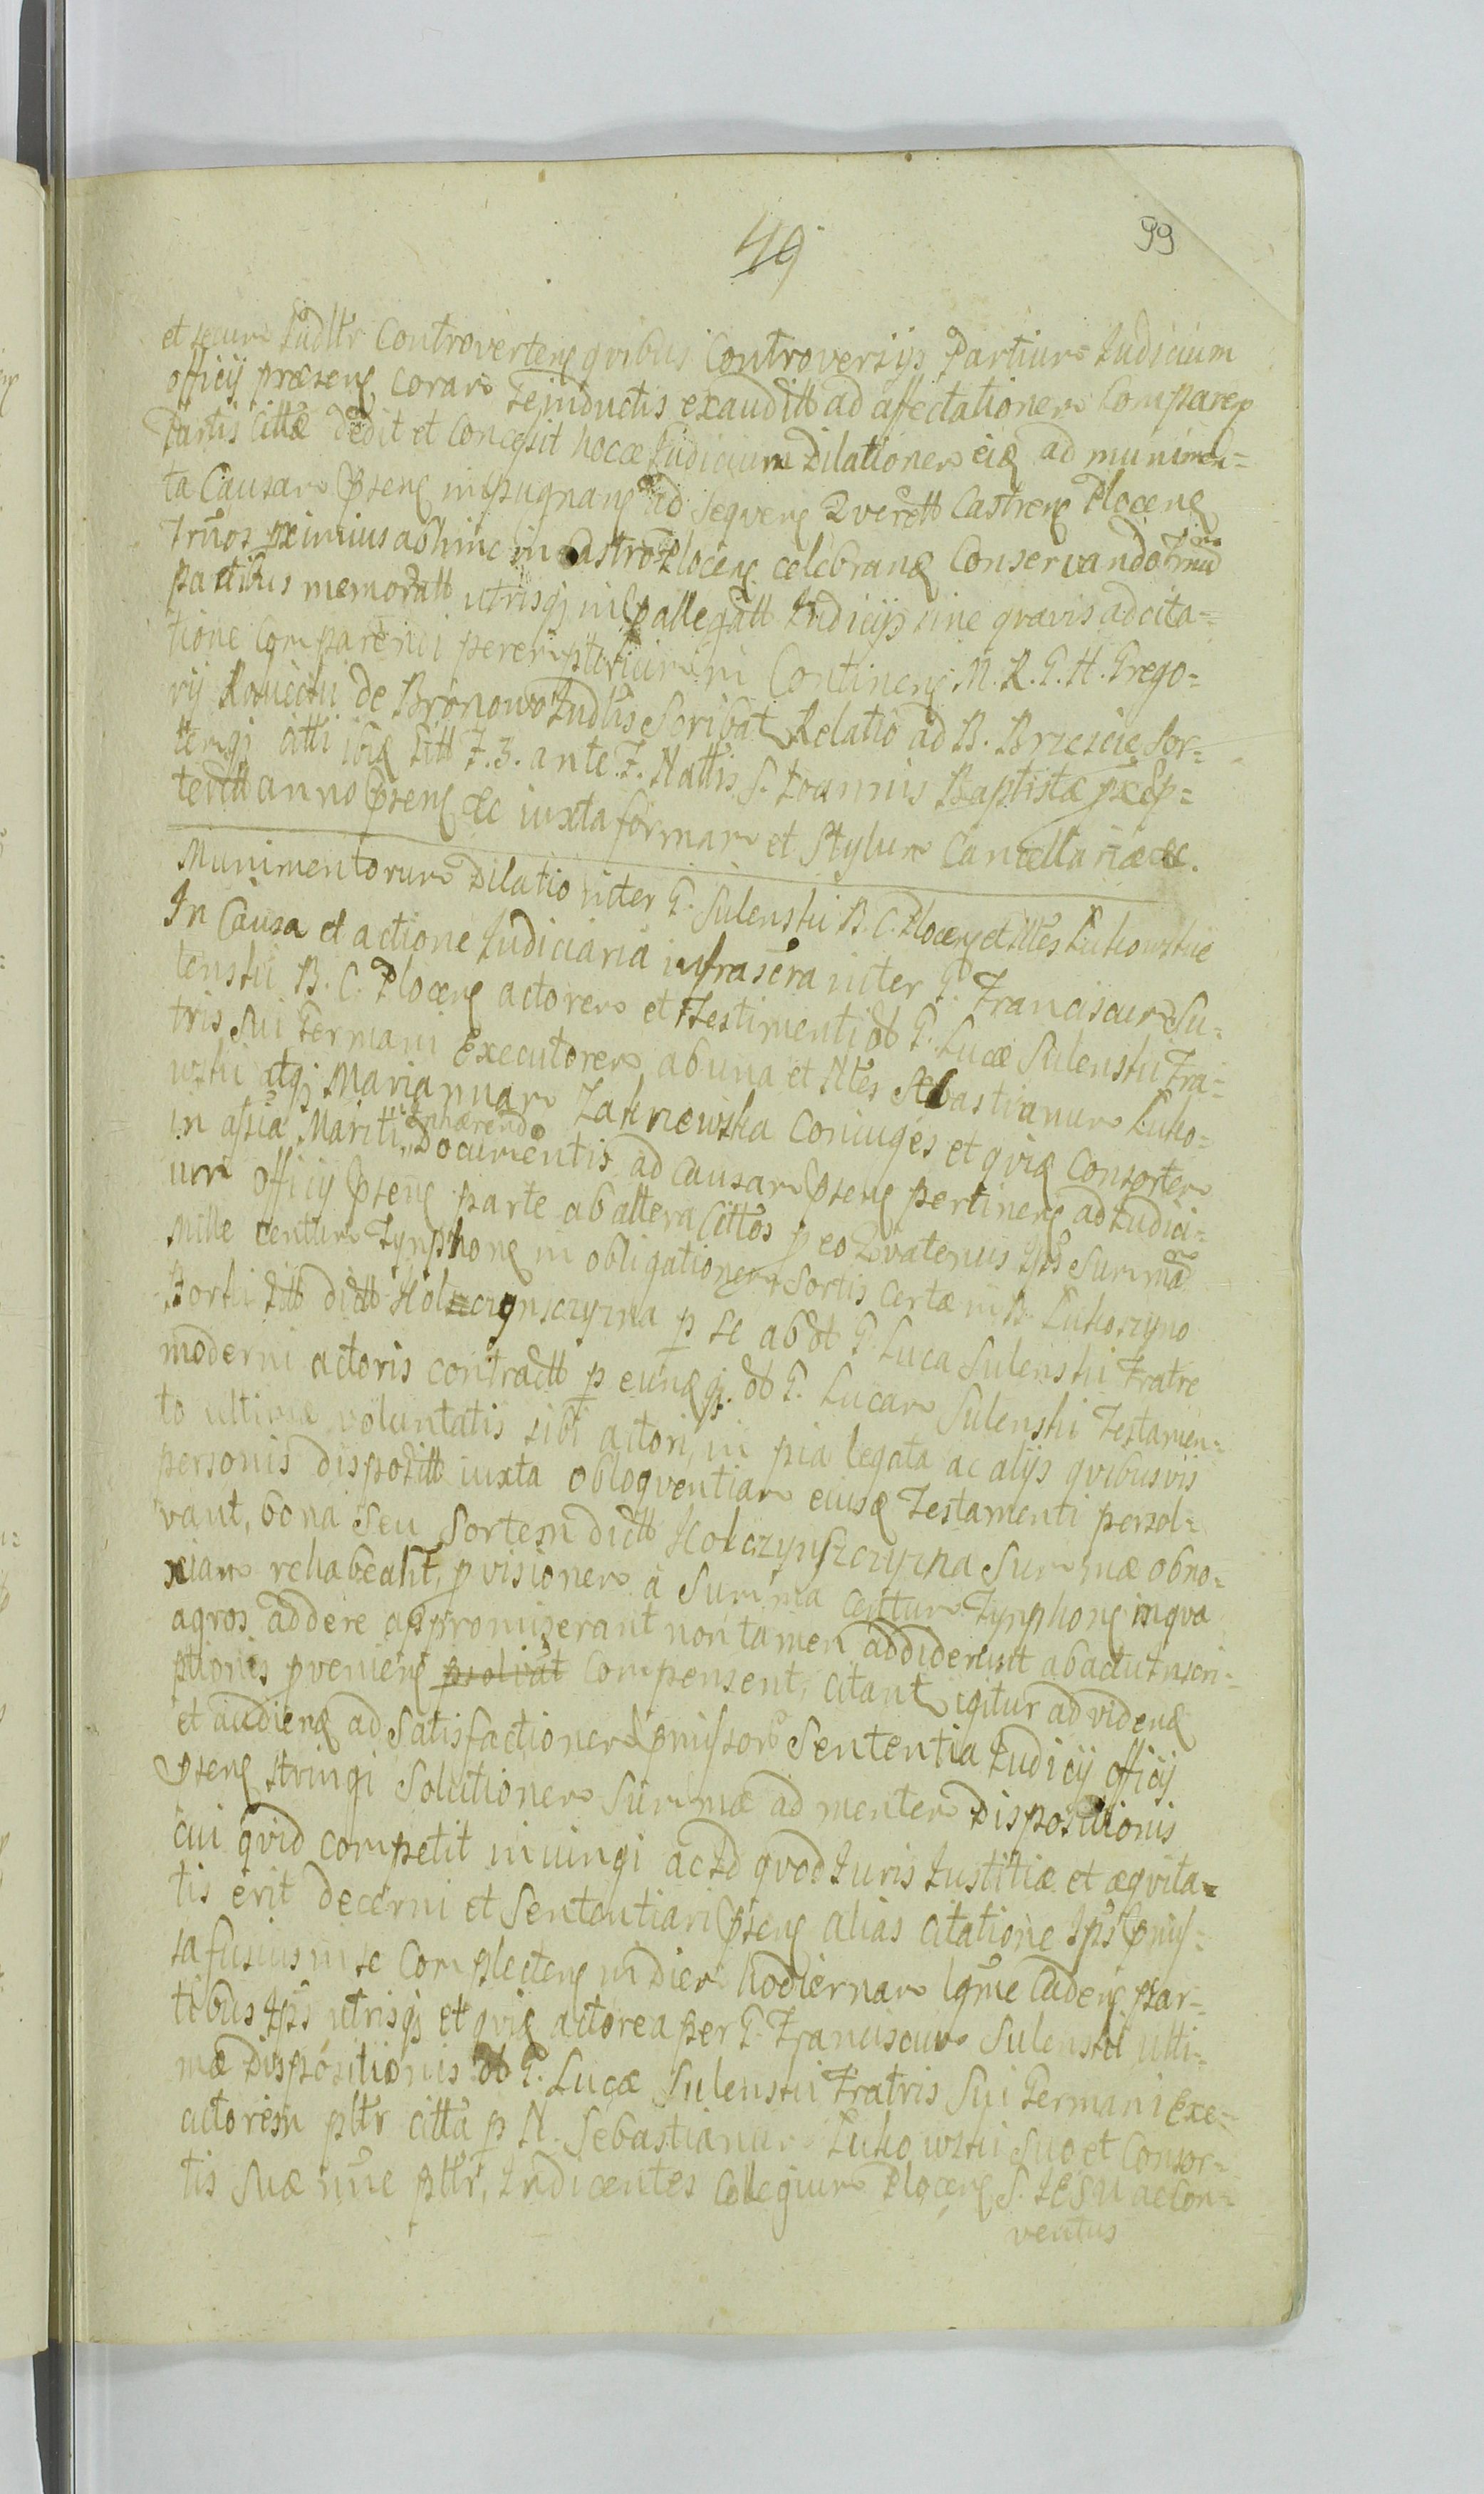 49
99
et secum Iudltr Controverteng qvibus Controversijs Partium Iudicium
officij præseng coram se inductis exauditt ad affectationem Comparen
Partis Cittæ dedit et Concessit hocce Iudicium Dilationem eid ad munimen=
ta Causam Pseng impugnang ad seqveng Qverett Castreng Ploceng
Trnos pximius abhinc in Castro Ploceng celebrand Conservando Trmum
partibus memoratt utrisq in Pallegatt Iudicijs sine qravis adcita=
tione Comparendi peremptorium in Contineng M. R. G. H. Grego=
rij de Bronowo Iudlis Scribat Relatio ad B. Brzescie Sor=
temq citti ibid sitt F. 3. ante F. Nattis S. Ioannis Baptistæ præp=
teritt anno Pseng &c iuxta formam et Stylum Cancellariæ &c.
Munimentorum Dilatio inter G. Sulenski B. C. Ploceng et Nles Lukowskie
In Causa et actione Iudiciaria infrascra inter G. Franciscum Su=
lenski B. C. Ploceng actorem et Testimenti ol G. Lucæ Sulenski Fra=
tris sui Germani Executorem ab una et Nles Sebastianum Luko=
wski atq Mariannam Zakrzewska Coniuges et qvid Consortem
in assia Mariti, inhærend Documentis ad Causam Pseng pertineng ad Iudici=
um officij Pseng parte ab altera Cittos p eo Qvatenus ipsi Summam
Mille centum Tynphong in obligationem Sortis Certæ in B. Lukoszyno
Borki sitt dictt Holczynsczyzna p se ab ol G. Luca Sulenski Fratre
moderni actoris contractt p eund q. ol G. Lucam Sulenski Testamen=
to ultimæ voluntatis sibi actori, in pia legata ac alijs qvibusvis
personis dispositt iuxta obloqventiam eiusd Testamenti persol=
vant, bona seu Sortem dictt Holczynszczyzna Summæ obno=
xiam rehabeant, pvisionem a Summa centum Tynphong in qva
agros addere appromiserant non tamen addiderunt ab actu Inscri=
ptionis pvenieng psolvat Compensent, citant igitur ad vidend
et audiend ad Satisfactionem Pmissor Sententia Iudicij officij
Pseng stringi Solutionem Summæ ad mentem Dispositionis
cui qvid competit iniungi ac Id qvod Iuris Iustitiæ et æqvita=
tis erit decerni et Sententiari Pseng alias citatione Ipsi Pmis=
sa fusius in se Complecteng in diem hodiernam lgme Cadeng par=
tibus ipsis utrisq et qvid actorea per G. Franciscum Sulenski ulti=
mæ Dispositionis ol G. Lucæ Sulenski Fratris Sui Germani Exe=
cutorem pltr citta p N. Sebastianum Lukowski Suo et Consor=
tis Suæ nne pltr, Indicentes Collegium Ploceng S. IESU ac Con=
ventus